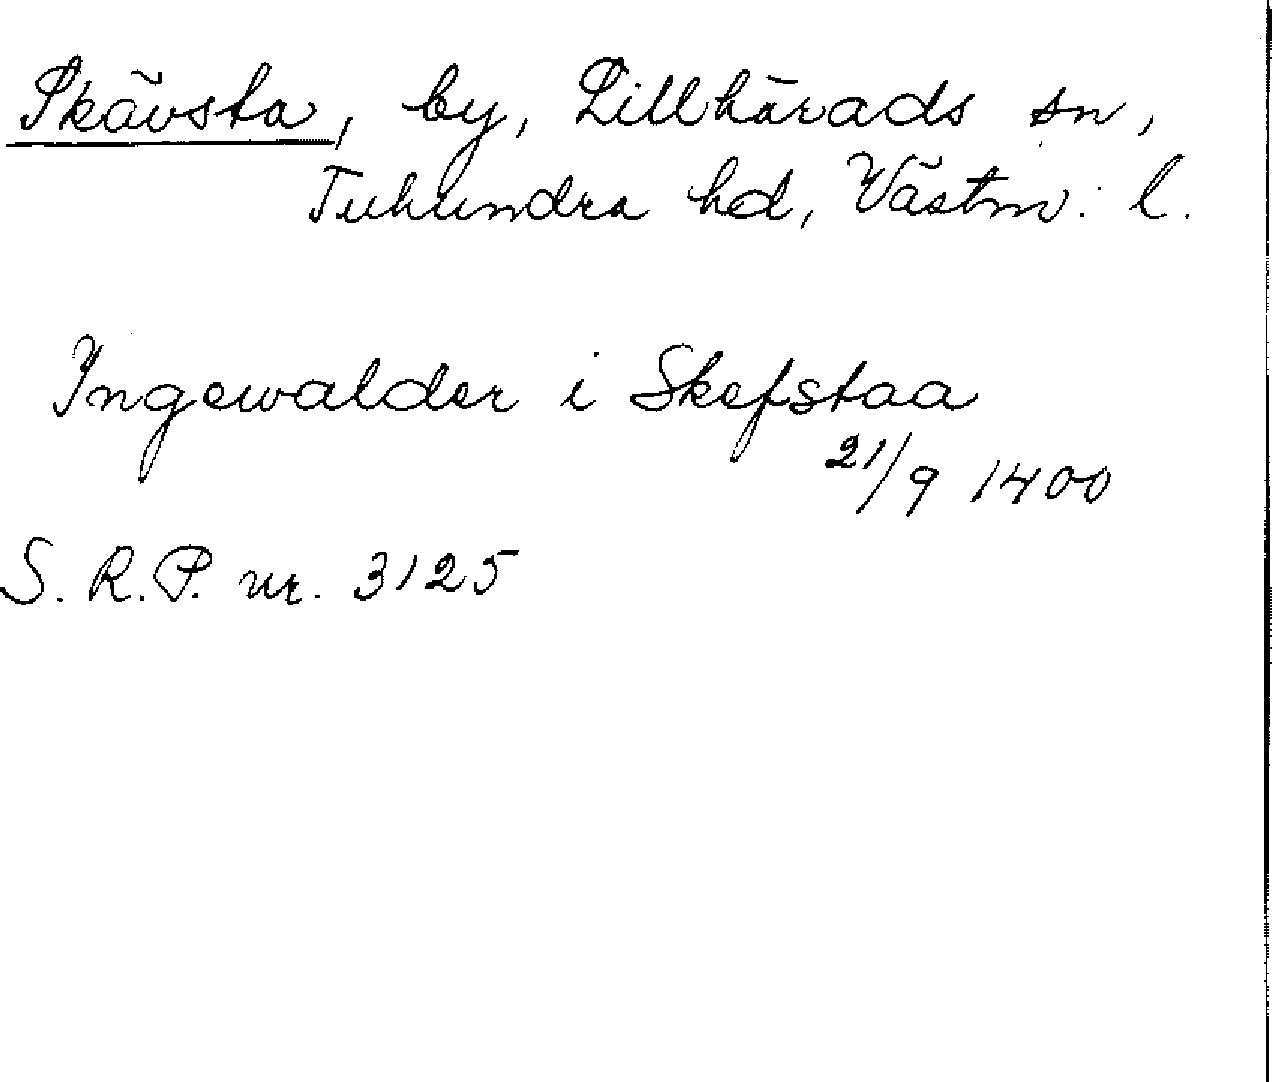 Skävsta, by, Lillhärads sn,
Tuhundra hd, Västm. l.
Ingewalder i Skefstaa
21/9 1400
S. R. P. nr. 3125